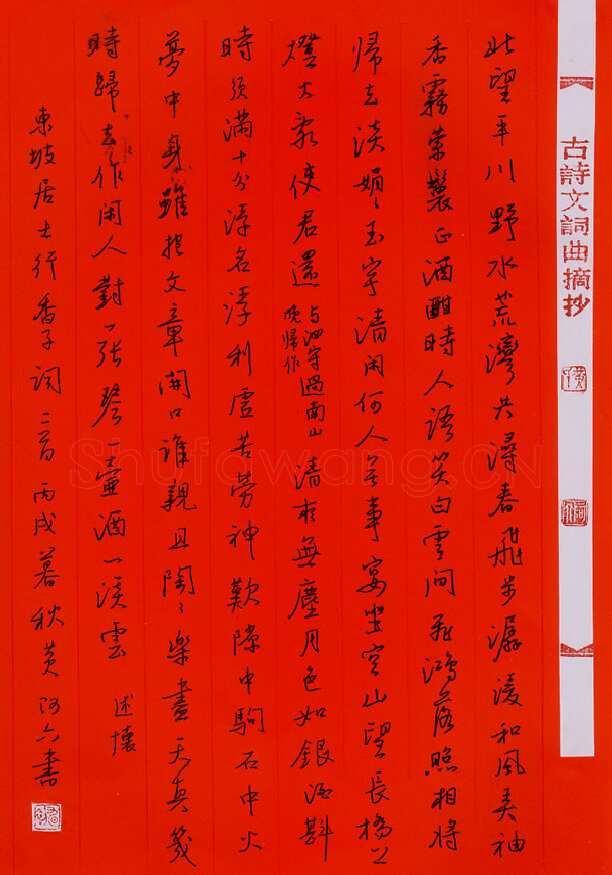 古詩文詞曲摘抄
北望平川野水荒灣共潯春飛步潺湲和風弄袖
香霧縈鬟正酒酣時人語笑白雲間飛鴻落照相將
帰去淡娟々玉宇清閑何人無事宴坐空山望長橋上
燈火亂使君還 与泗守過南山晚帰作 清夜無塵月色如銀酒斟
時須滿十分浮名浮利虛苦勞神歎隙中駒石中火
夢中身雖抱文章開口誰親且陶々樂盡天真幾
時歸去作閑人對一張琴一壺酒一溪雲 述懷
東坡居士行香子詞二首丙戌暮秋黃阿六書
Shufawang.CN